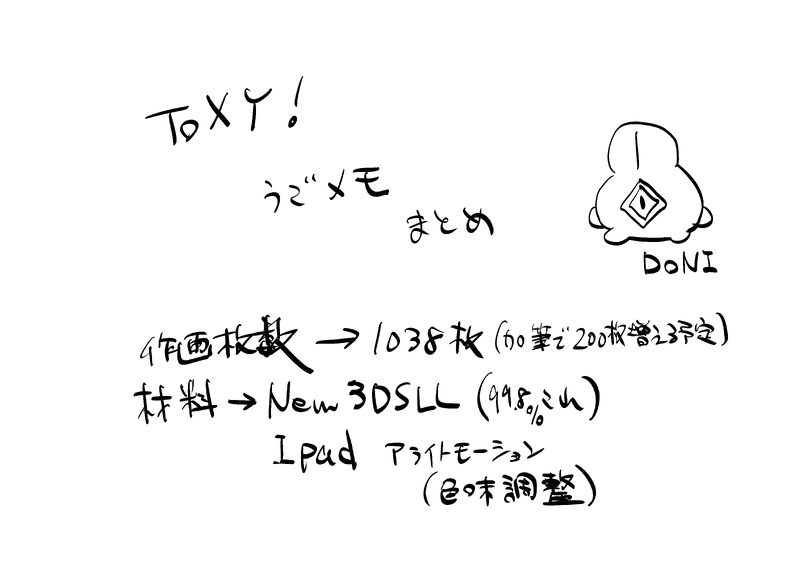 ToXY!
うごメモ
まとめ
DONI
作画枚数→1038枚(加筆で200枚増える予定)
材料→New 3DSLL(99.8%これ)
Ipad アライトモーション
(色味調整)